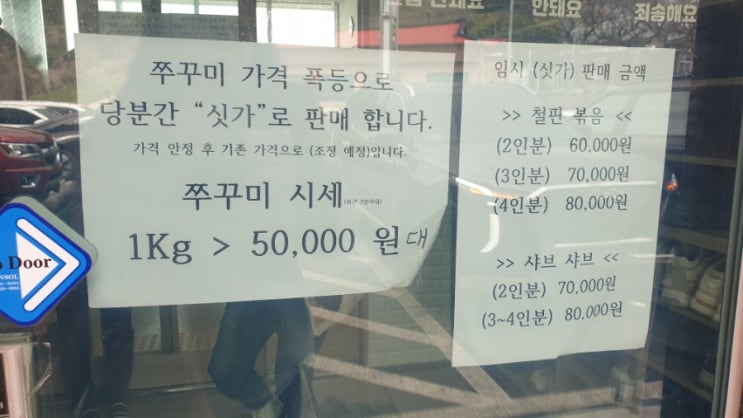 안돼요
안돼요
죄송해요
쭈꾸미 가격 폭등으로
당분간 “싯가”로 판매 합니다.
가격 안정 후 기존 가격으로 (조정 예정)입니다.
쭈꾸미 시세
1Kg > 50,000 원대
임시 (싯가) 판매 금액
>> 철판 볶음 <<
(2인분) 60,000원
(3인분) 70,000원
(4인분) 80,000원
>> 샤브 샤브 <<
(2인분) 70,000원
(3~4인분) 80,000원
Door